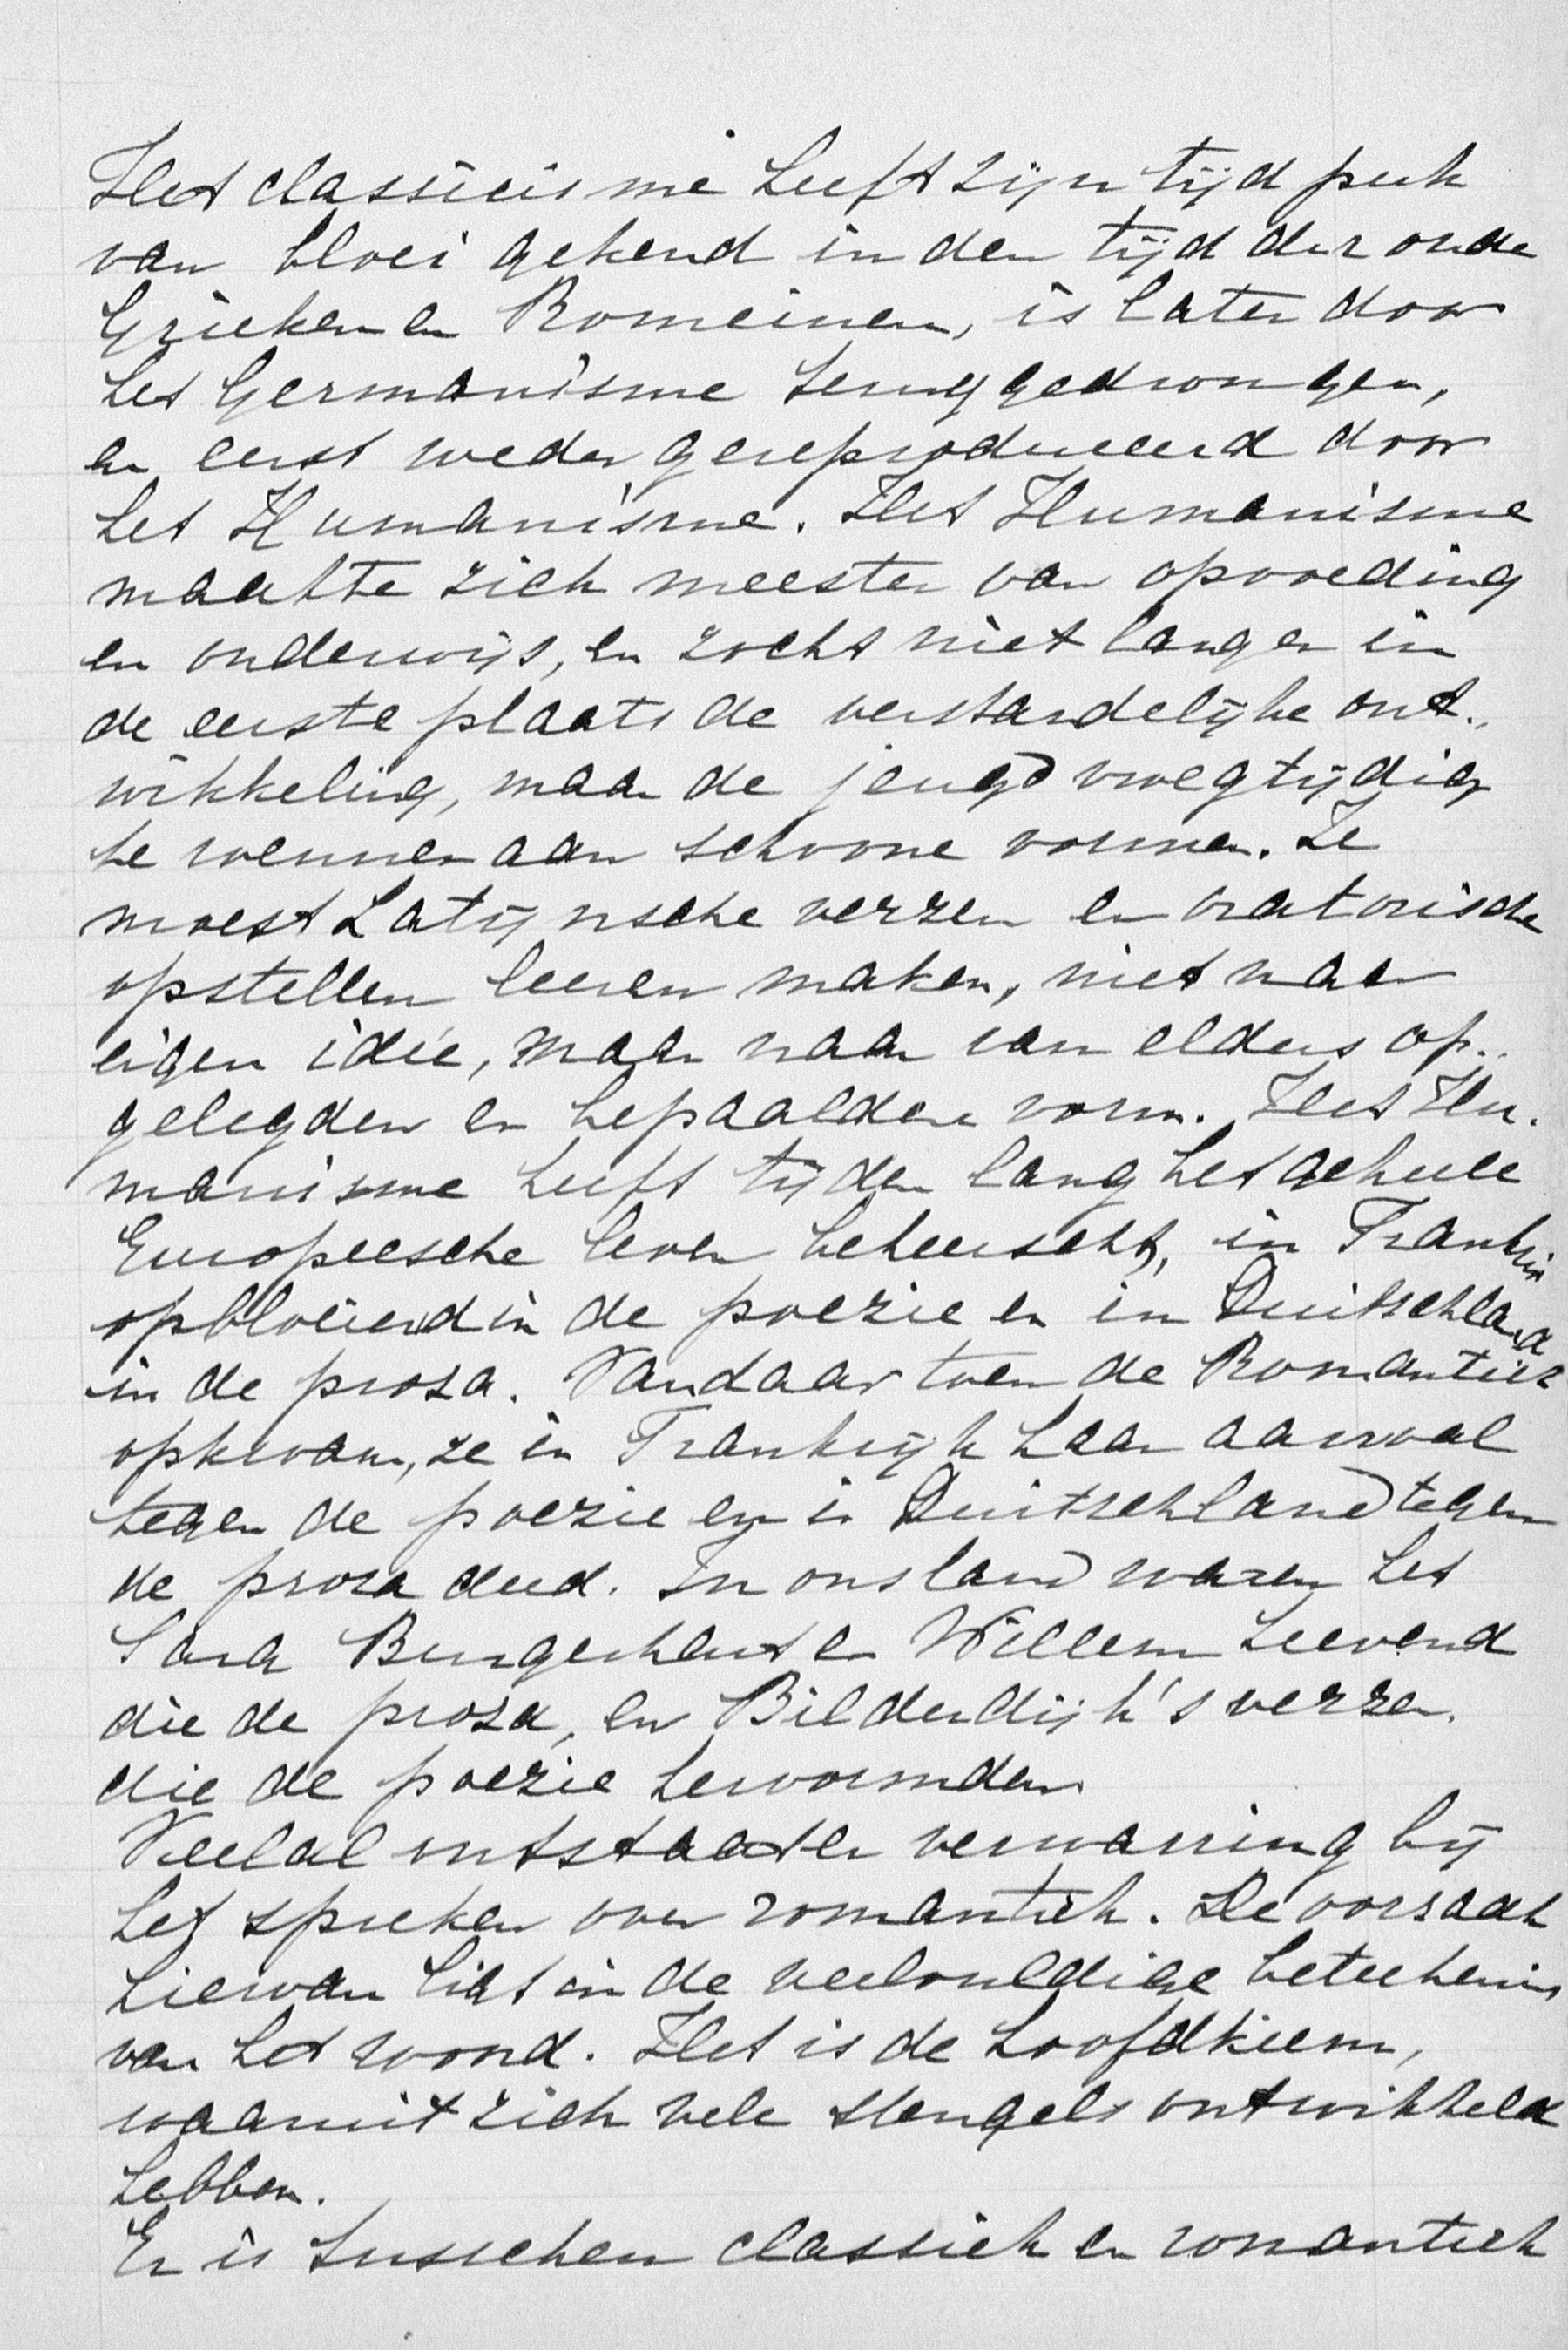 Het classicisme heeft zijn tijd perk
van bloei gekend in den tijd der oude
Grieken en Romeinen, is later door
het Germanisme teruggedrongen,
en eerst weder gereproduceerd door
het Humanisme. Het Humanisme
maakte zich meester van opvoeding
en onderwijs, en zocht niet langer in
de eerste plaats de verstandelijke ont-
wikkeling, maar de jeugd vroegtijdig
te wennen aan schoone vormen. Ze
moest Latijnsche verzen en oratorische
opstellen leeren maken, niet naar
eigen idée, maar naar van elders op-
gelegden en bepaalden vorm. Het Hu-
manisme heeft tijden lang het geheele
Europeesche leven beheerscht, in Frankrijk
opbloeiend in de poezie en in Duitschland
in de proza. Vandaar toen de Romantiek
opkwam, ze in Frankrijk haar aanval
tegen de poezie en in Duitschland tegen
de proza deed. In ons land waren het
Sara Burgerhart en Willem Leevend
die de proza, en Bilderdijk's verzen.
die de poezie hervormden
Veelal ontstaat er verwarring bij
het spreken over romantiek. De oorzaak
hiervan ligt in de veelvuldige beteekenis
van het woord. Het is de hoofdkiem,
waaruit zich vele stengels ontwikkeld
hebben.
Er is tusschen classiek en romantiek